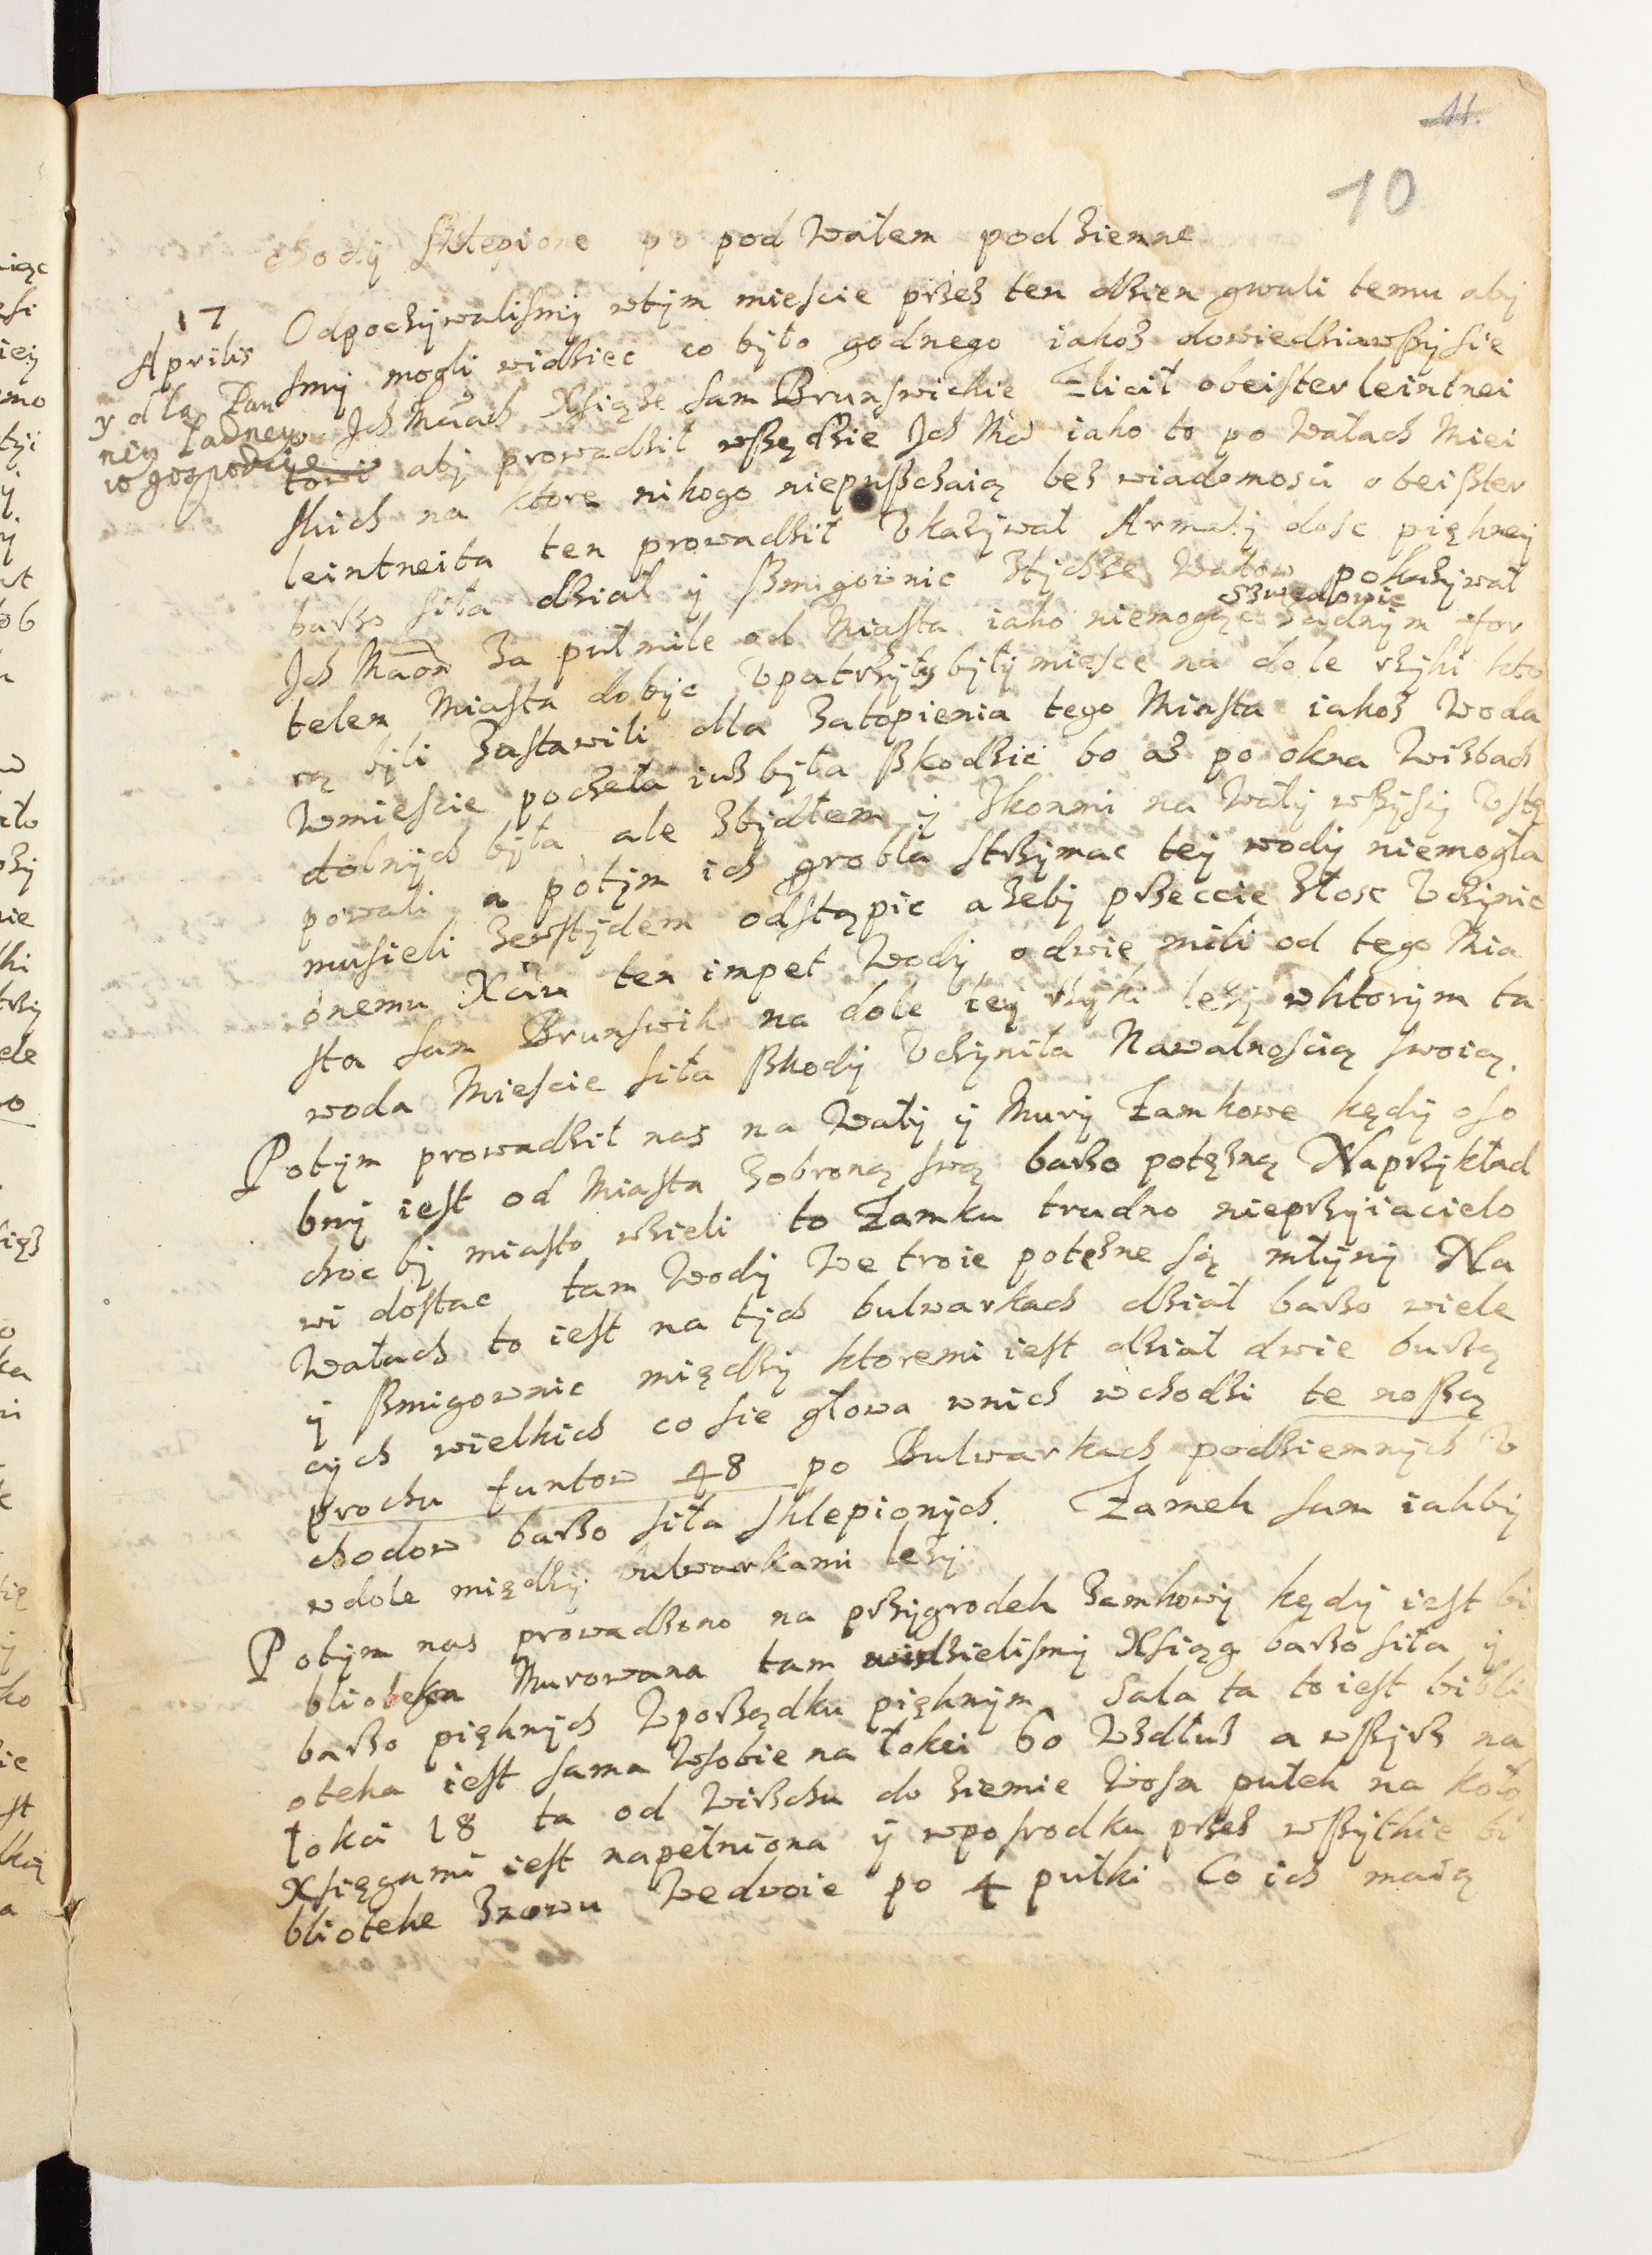 11.
10
chody sklepione po pod Wałem podziemne
17 Aprilis
y dla Pan
niey ładney
w gospodzie
Odpoczywalismy wtym miescie przez ten dzien gwuli temu aby
smy mogli widziec co było godnego iakoz dowiedziawszy sie
Ich Mciach Xsiąze sam Brunswickie Zlicił obeister leintnei
towi aby prowadził wszędzie Ich Mci iako to po Wałach Miei
skich na ktore nikogo niepuszczaią bez wiadomosci obeister
leintneita ten prowadził Vkazywał Armaty dosc piękney
barzo siła dział y szmigownic Ztychze Wałow pokazywał
Ich Mciom Za pułmile od Miasta iako niemogąc Szwedowie zadnym for
telem Miasta dobyc Vpatrzyły były miesce na dole rzyki kto
rą byli Zastawili dla Zatopienia tego Miasta iakoz Woda
Wmiescie poczeła iuz była szkodzic bo az po okna Wizbach
dolnych była ale Zbydłem y Zkonmi na Wały wszyscy Vstę
powali a potym ich grobla strzymac tey wody niemogła
musieli Zewstydem odstąpic azeby przeccie Złosc Vczynic
onemu Xciu ten impet Wody odwie mili od tego Mia
sta sam Brunswik na dole tey rzyki lezy wktorym ta
woda Miescie siła szkody Vczyniła Nawalnoscią swoią.
Potym prowadził nas na Wały y Mury Zamkowe kędy oso
bny iest od Miasta Zobroną swą barzo potęzną Naprzykład
choc by miasto wzieli to Zamku trudno nieprzyiacielo
wi dostac tam Wody We troie potęzne są młyny Na
Wałach to iest na tych bulwarkach dział barzo wiele
y szmigownic między ktoremi iest dział dwie burzą
cych wielkich co sie głowa wnich wchodzi te noszą
prochu funtow 48 po Bulwarkach podziemnych V
chodow barzo siła sklepionych. Zamek sam iakby
wdole między bulwarkami lezy
Potym nas prowadzono na przygrodek Zamkowy kędy iest bi
blioteka Murowana tam widzielismy Xsiąg barzo siła y
barzo pięknych Wporządku pięknym Sala ta to iest bibli
oteka iest sama Wsobie na łokci 60 Wzdłuz a wszyrz na
łokci 18 ta od Wirzchu do ziemie Wosm pułek na koło
Xsięgami iest napełniona y wposrodku przez wszytkie bi
blioteke Znowu Wedwoie po 4 pułki Co ich maią